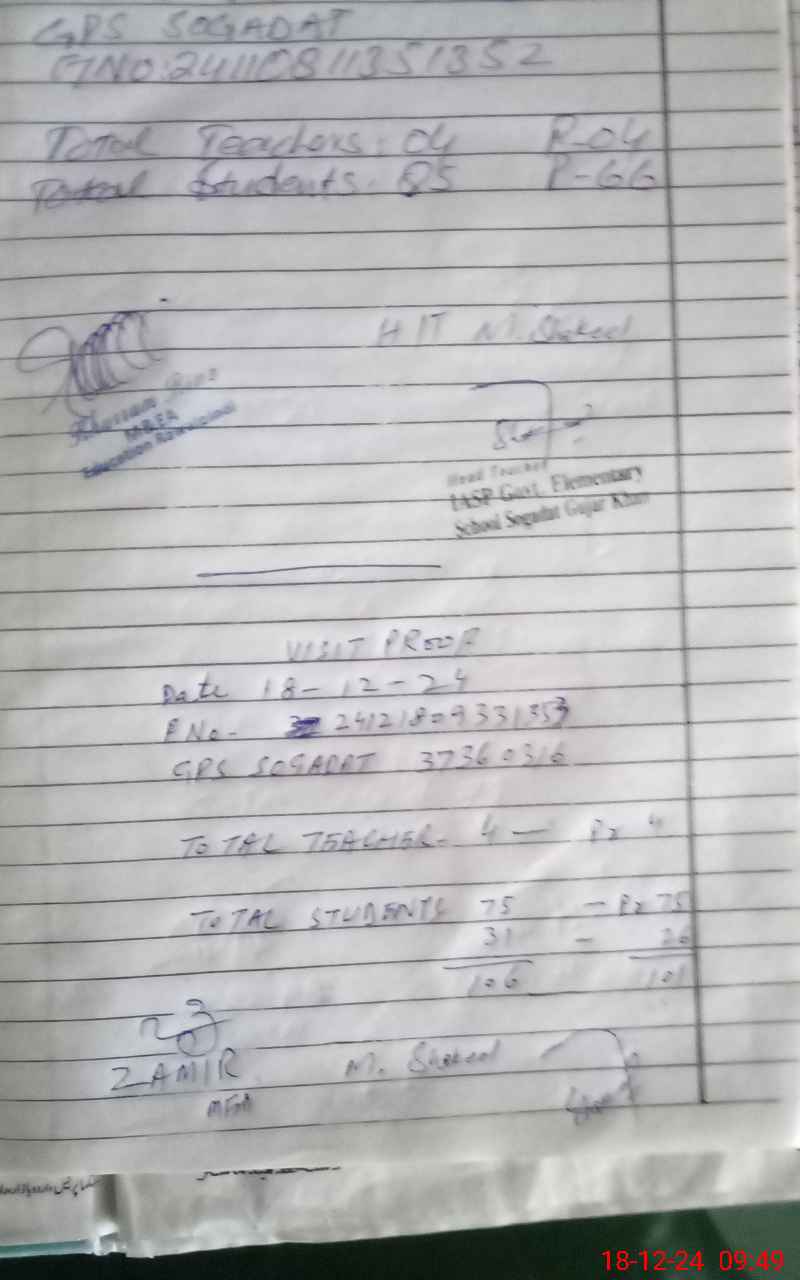 GPS SOGADAT
Total Teachers: 04 P-04
Total Students: 85 P-66
H/T M. Shakeel
MEA
Education Rawalpindi
Head Teacher
IASP Govt. Elementary
School Sogadat Gujar Khan
VISIT PROOF
Date 18-12-24
P No-
GPS SOGADAT 37360316
TOTAL TEACHER- 4 — P= 4
TOTAL STUDENTS 75 — P= 75
31 — 26
106 101
ZAMIR M. Shakeel
MEA
18-12-24 09:49